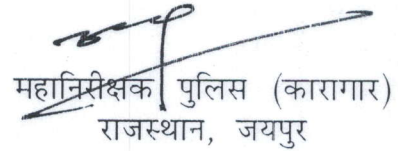 महानिरीक्षक पुलिस (कारागार)
राजस्थान, जयपुर